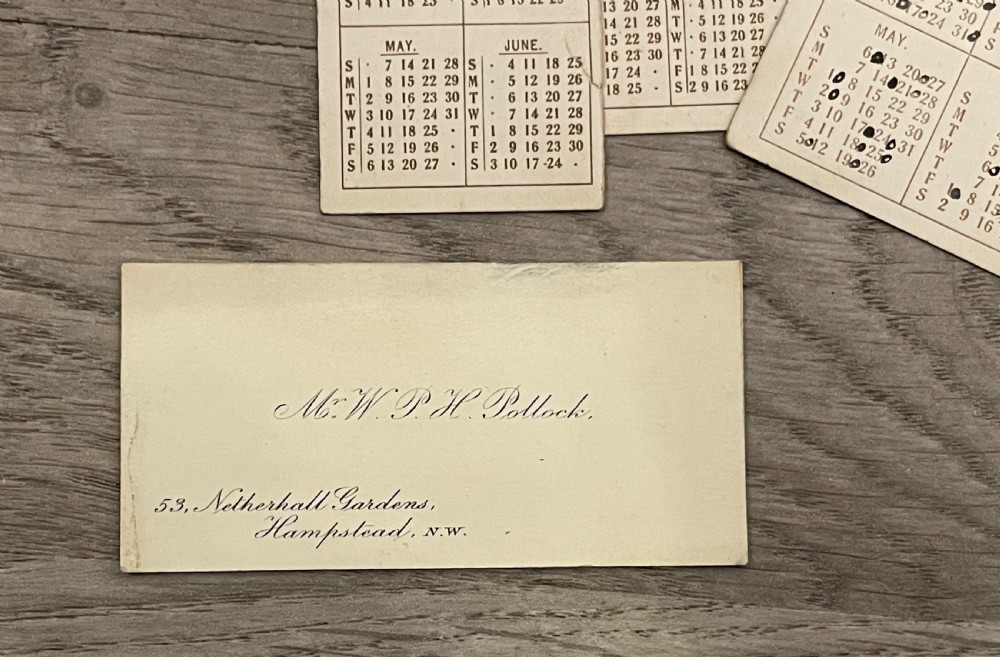 S 4 11 18 25 · S 1 8 15 22 29
MAY. JUNE.
S · 7 14 21 28 S · 4 11 18 25
M 1 8 15 22 29 M · 5 12 19 26
T 2 9 16 23 30 T · 6 13 20 27
W 3 10 17 24 31 W · 7 14 21 28
T 4 11 18 25 · T 1 8 15 22 29
F 5 12 19 26 · F 2 9 16 23 30
S 6 13 20 27 · S 3 10 17 24 ·
M · 4 11 18 25
14 21 28 T · 5 12 19 26
15 22 29 W · 6 13 20 27
16 23 30 T · 7 14 21 28
17 24 · F 1 8 15 22
18 25 · S 2 9 16 23
23 30
17 24 31
MAY.
S 6 13 20 27
M 7 14 21 28
T 1 8 15 22 29 S
W 2 9 16 23 30 M
T 3 10 17 24 31 T 5
F 4 11 18 25 W 6
S 5 12 19 26 T 7
F 1 8 15
S 2 9 16
Mr. W. P. H. Pollock.
53, Netherhall Gardens,
Hampstead, N.W.